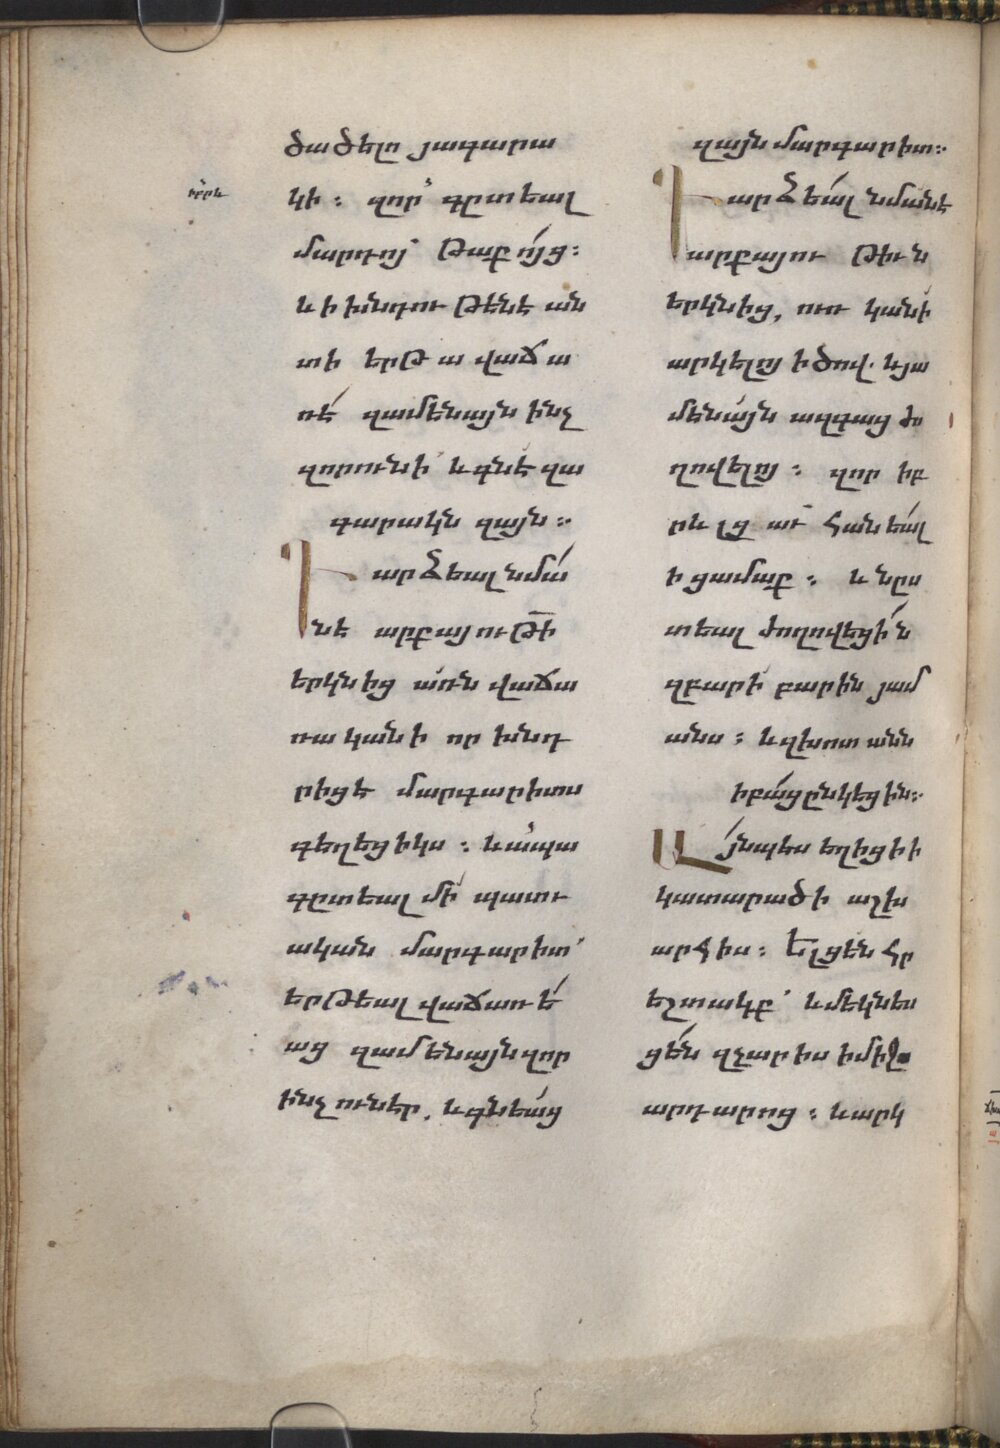 իբրև
ծածելո յագարա
կի : զոր գըտեալ
մարդոյ թաքոյց :
և ի խնդութենէ ան
տի երթա վաճա
ռէ զամենայն ինչ
զոր ունի և գնէ զա
գարակն զայն :
Դարձեալ նմա
նէ արքայութի
երկնից առն վաճա
ռականի որ խնդ
րիցէ մարգարիտս
գեղեցիկս : և ապա
գըտեալ մի պատու
ական մարգարիտ՝
երթեալ վաճառե
աց զամենայն զոր
ինչ ուներ, և գնեաց
զայն մարգարիտ :
Դարձեալ նմանէ
արքայութիւն
երկնից, ուռկանի
արկելոյ ի ծով. և յա
մենայն ազգաց ժո
ղովելոյ : զոր իբ
րև լցաւ հանեալ
ի ցամաք : և նըս
տեալ ժողովեցին
զբարի բարին յամ
անս : և զխոտանն
ի բաց ընկեցին :
Այնպես եղիցի ի
կատարածի աշխ
արհիս : Ելցեն հր
եշտակք՝ և մեկնես
ցեն զչարիս ի միջո
արդարոց : և արկ